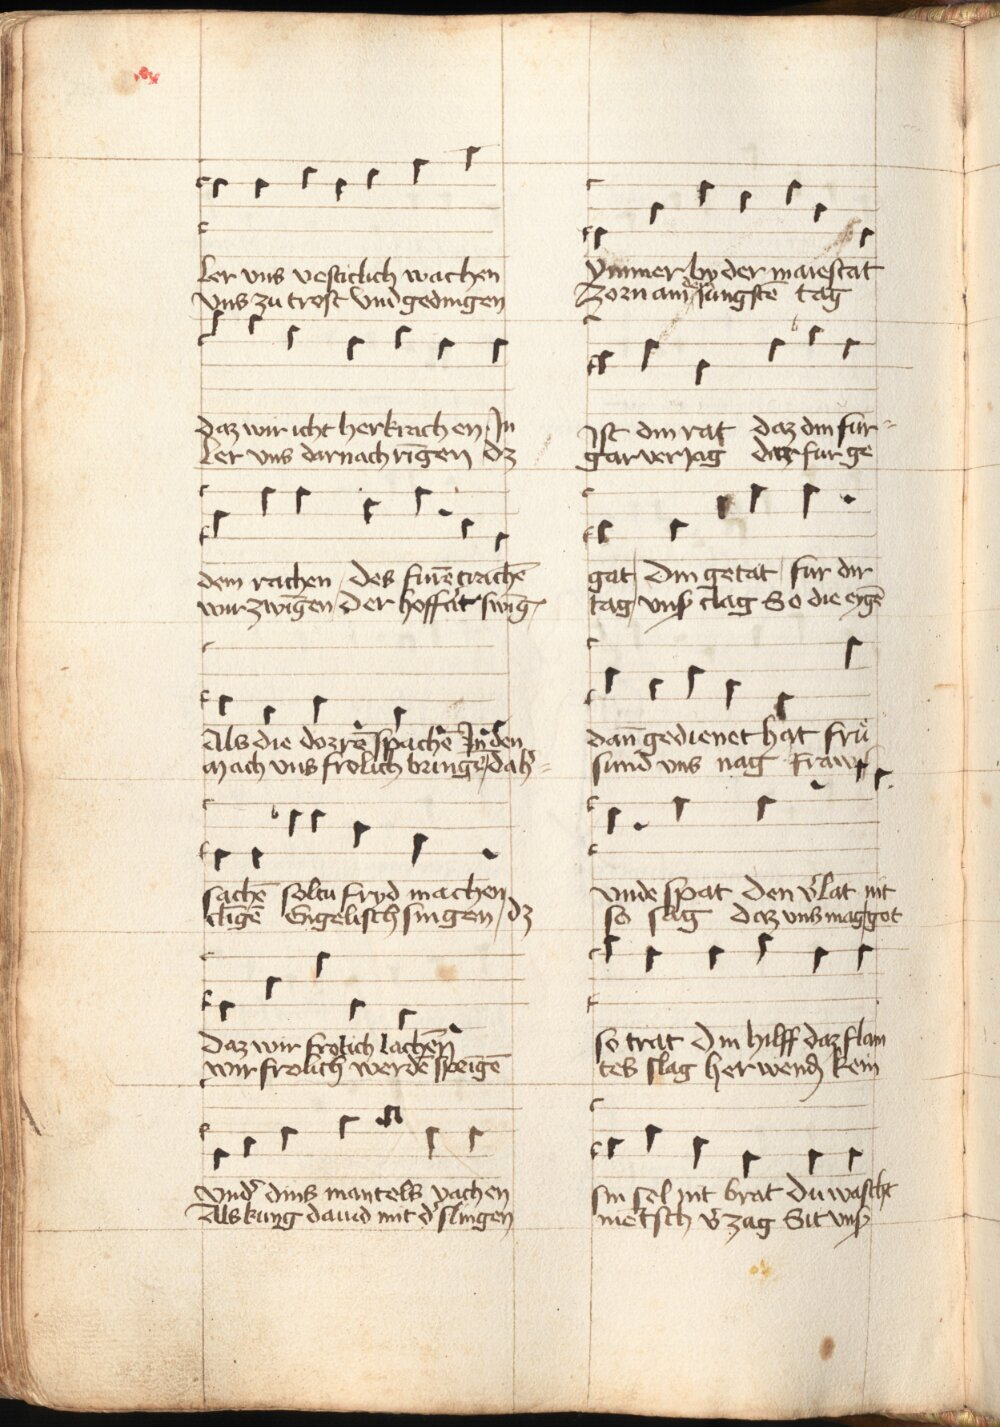 ler vns vesticlich wachen
vns zu trost vnd gedingen
daz wir icht herkrachen In
ler vns darnach ringen dz
dem rachen / des fures trachē
wir zwigen / Der hoffart swig
Als die dorrē spachē In den
mach vns frolich bringē / dah
sachē soltu fryd machen
clīgē Engelisch singen / dz
Daz wir frolich lachēn
wir frolich werdē spēigē
vnder dins mantels vachen
Als kung dauid mit der slingen
ymmer by der maiestat
Zorn am Jungstē tag
Ist din rat daz din fur
gar verjag daz fur ge
gat / Din getat / fur dir
tag / vnser clag So die eygē
dan gedienet hat fru
sund vns nag Fraw
vnde spat Den v'lat nit
so slag daz vns mag got
so trat Din hilff daz flam
tes slag herwend kein
sin sel nit brat Du wascht
mētsch v'zag Sit vns